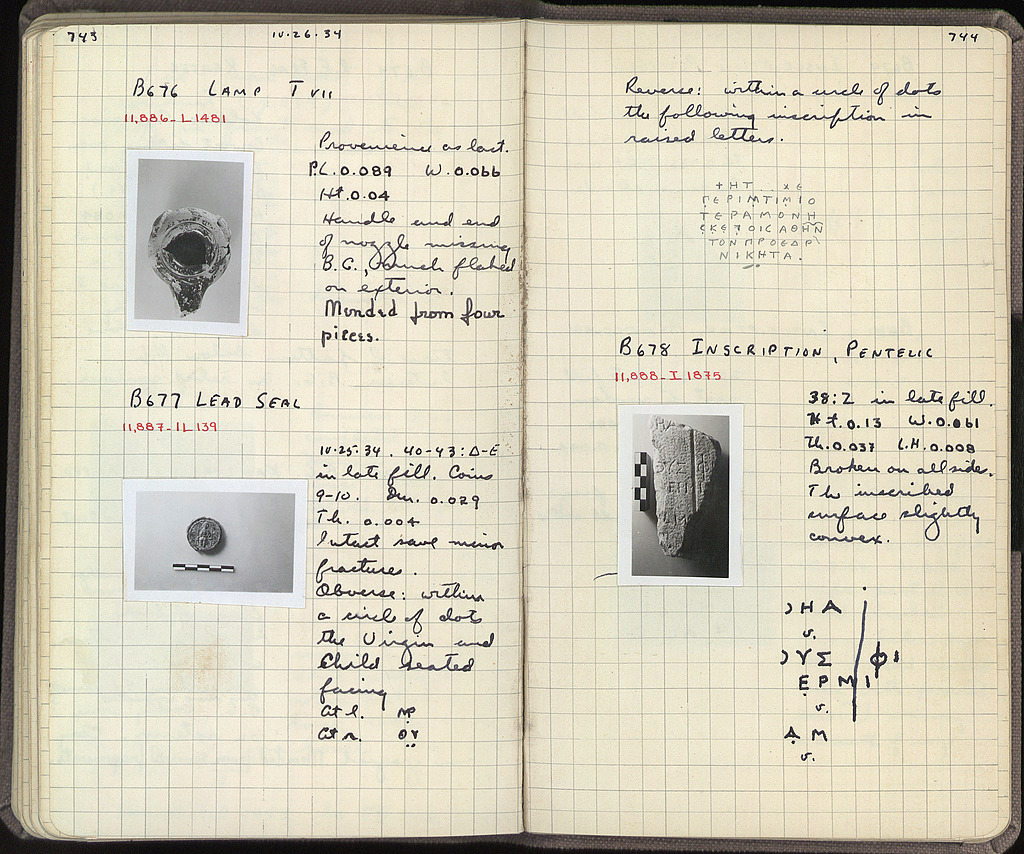 743
IV·26·34
B676 LAMP T VII
11,886-L1481
Provenience as last.
P.L. 0.089 W. 0.066
Ht. 0.04
Handle and end
of nozzle missing
B.G., much flaked
on exterior.
Mended from four
pieces.
B677 LEAD SEAL
11,887-IL139
IV·25·34. 40-43:Δ-E
in late fill. Coins
9-10. Dm. 0.029
Th. 0.004
Intact save minor
fractures.
Obverse: within
a circle of dots
the Virgin and
Child seated
facing
At l. ΜΡ
At r. ΘΥ
744
Reverse: within a circle of dots
the following inscription in
raised letters.
+ΗΤ...ΧΕ
ΠΕΡΙΜΤΙΜΙΟ
ΤΕΡΑΜΟΝΗ
ΣΚΕΠΟΙCΑΘΗΝ
ΤΟΝΠΡΟΕΔΡ
ΝΙΚΗΤΑ.
B678 INSCRIPTION, PENTELIC
11,888-I1875
38:Z in late fill.
Ht. 0.13 W. 0.061
Th. 0.037 L.H. 0.008
Broken on all sides.
The inscribed
surface slightly
convex.
)ΗΑ
v.
)ΥΣ | Φι
ΕΡΜΙ
v.
ΑΜ
v.